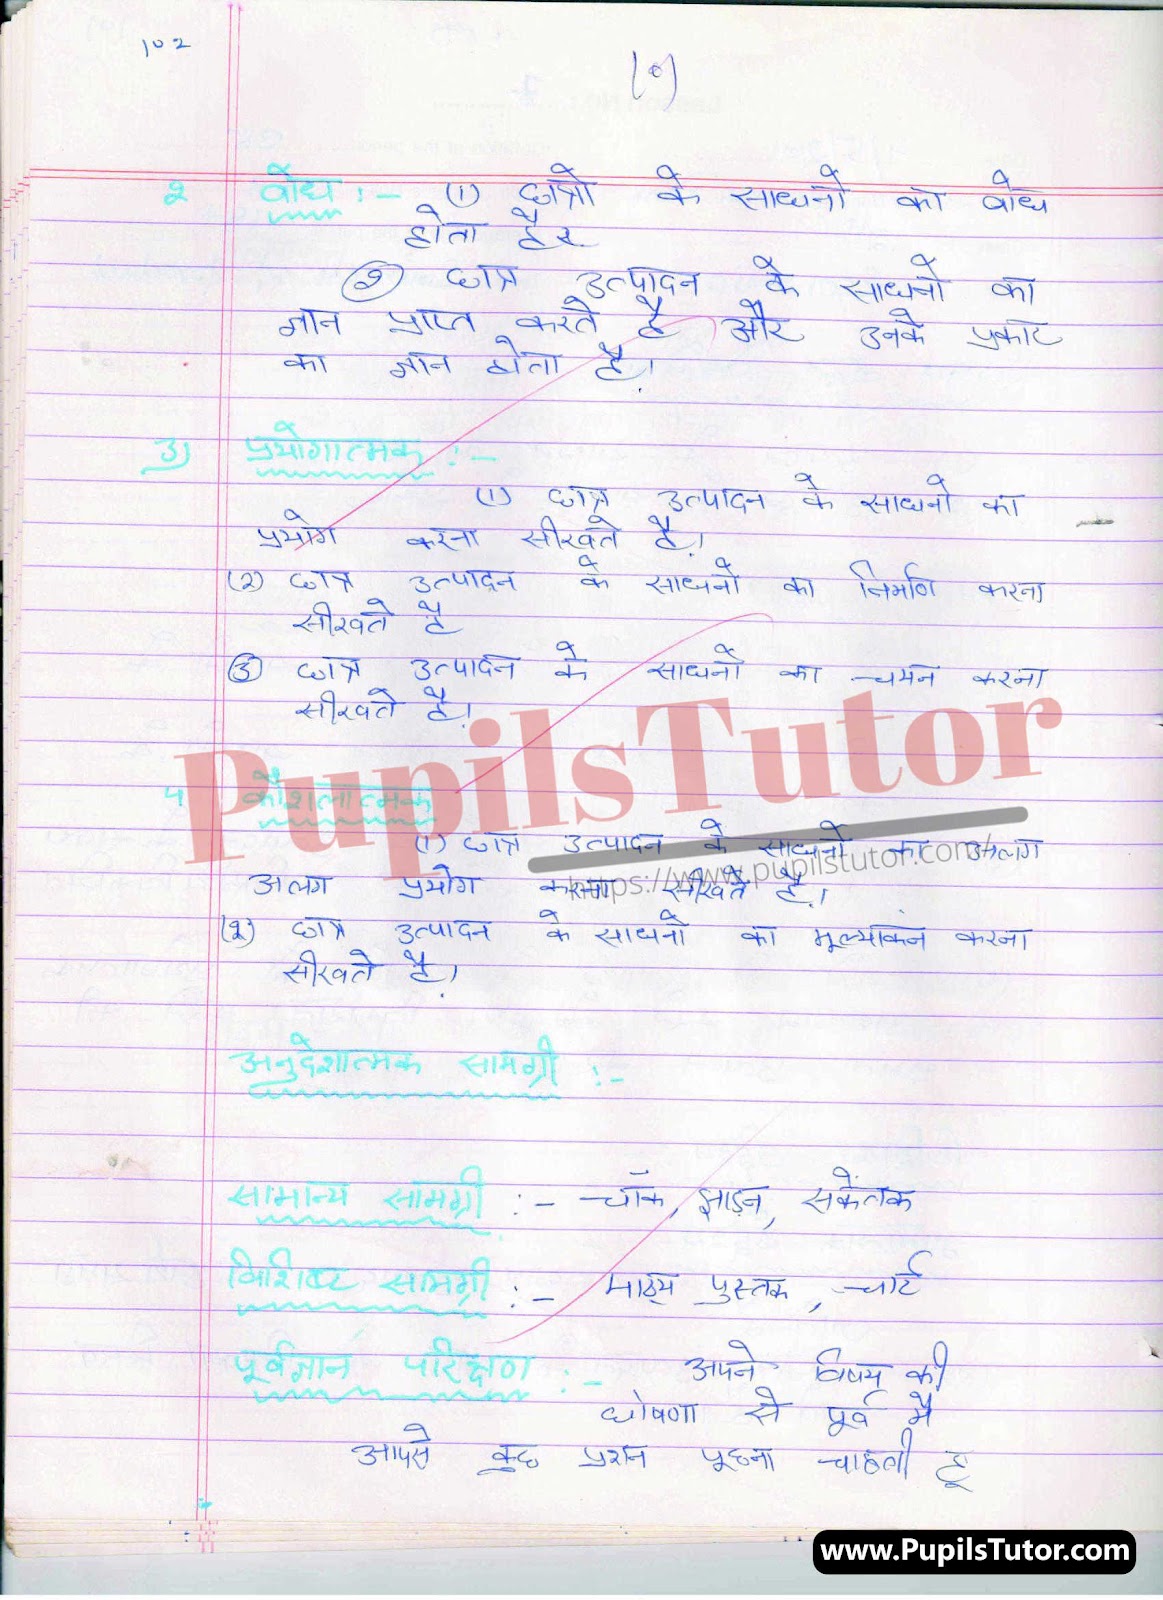 102
(०)
२ वोध :- (1) छात्रो के साधनो का वोध
होता है
(२) छात्र उत्पादन के साधनो का
ज्ञान प्राप्त करते है और उनके प्रकार
का ज्ञान होता है।
3) प्रयोगात्मक :-
(1) छात्र उत्पादन के साधनो का
प्रयोग करना सीखते है।
(२) छात्र उत्पादन के साधनो का निर्माण करना
सीखते है
(3) छात्र उत्पादन के साधनो का चयन करना
सीखते है।
PupilsTutor
५ कौशलात्मक
(1) छात्र उत्पादन के साधनो का अलग
https://www.pupilstutor.com/
अलग प्रयोग करना सीखते है।
(२) छात्र उत्पादन के साधनो का मूल्यांकन करना
सीखते है।
अनुदेशात्मक सामग्री :-
सामान्य सामग्री :- चॉक, झाड़न, संकेतक
विशिष्ट सामग्री :- पाठ्य पुस्तक, चार्ट
पूर्वज्ञान परिक्षण :- अपने विषय की
घोषणा से पूर्व मै
आपसे कुछ प्रशन पूछना चाहती हू
www.PupilsTutor.com